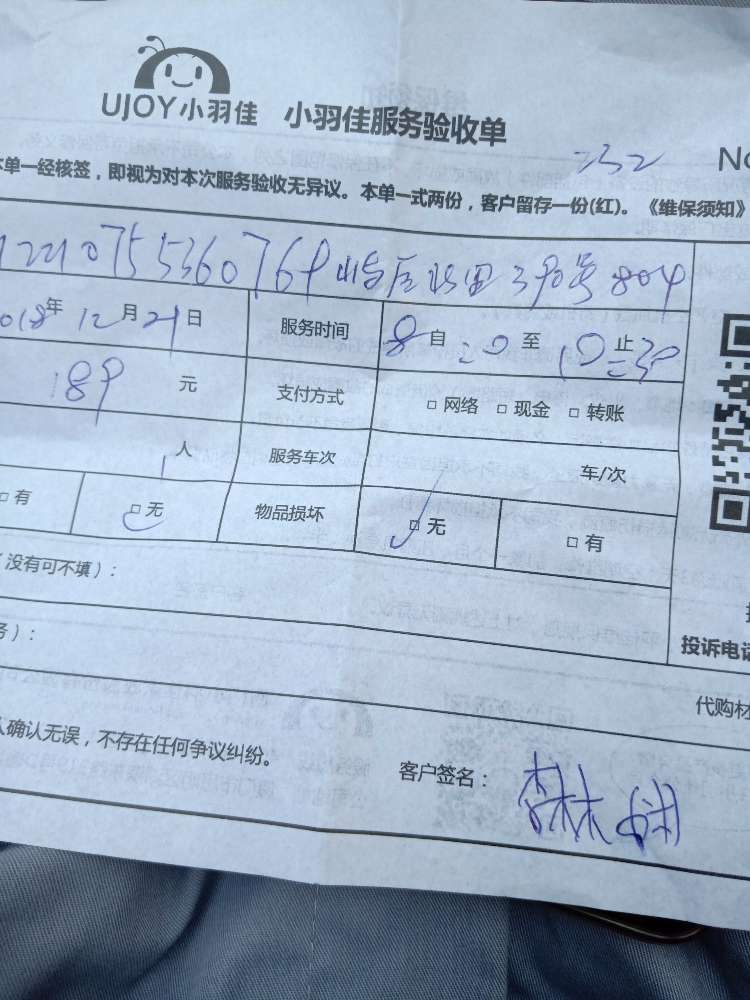 UJOY小羽佳 小羽佳服务验收单
No
本单一经核签，即视为对本次服务验收无异议。本单一式两份，客户留存一份(红)。《维保须知》
804
018年12月21日 服务时间 8自:20至10:30止
189元 支付方式 □网络 □现金 □转账
1人 服务车次 车/次
□有 □无 物品损坏 □无 □有
（没有可不填）：
务）：
投诉电话
代购材
人确认无误，不存在任何争议纠纷。
客户签名：